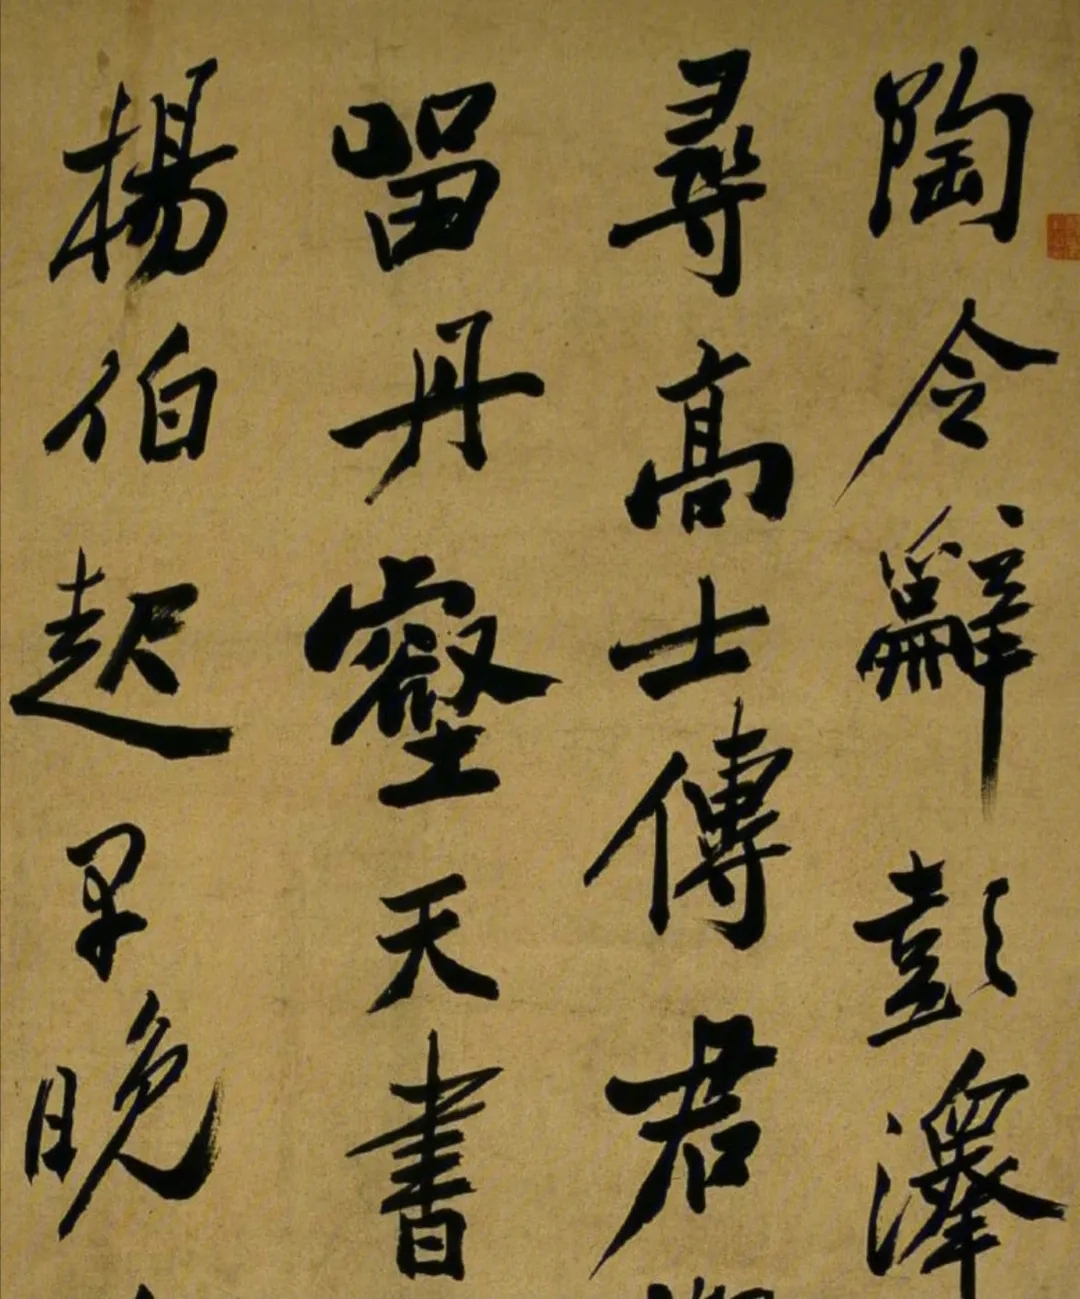 陶令辭彭澤
尋高士傳君
留丹壑天書
楊伯起早晚